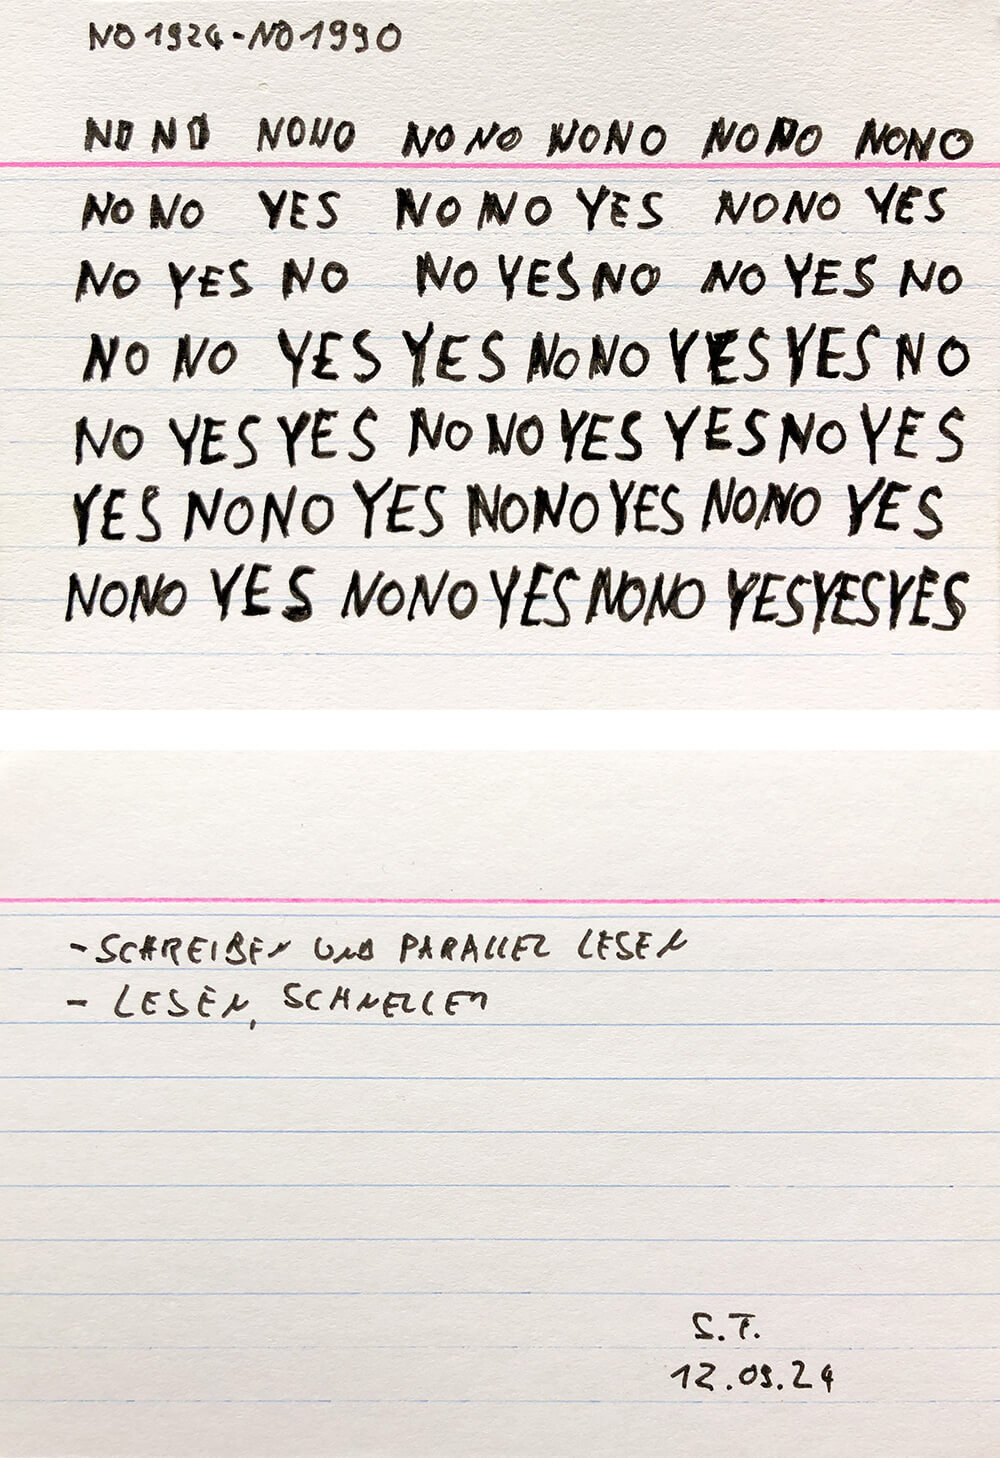 NO 1924-NO 1990
NO NO NONO NO NO NONO NO NO NONO
NO NO YES NO NO YES NONO YES
NO YES NO NO YES NO NO YES NO
NO NO YES YES NO NO YES YES NO
NO YES YES NO NO YES YES NO YES
YES NO NO YES NONO YES NONO YES
NONO YES NONO YES NONO YES YES YES
- SCHREIBEN UND PARALLEL LESEN
- LESEN, SCHNELLEN
S.T.
12.09.24